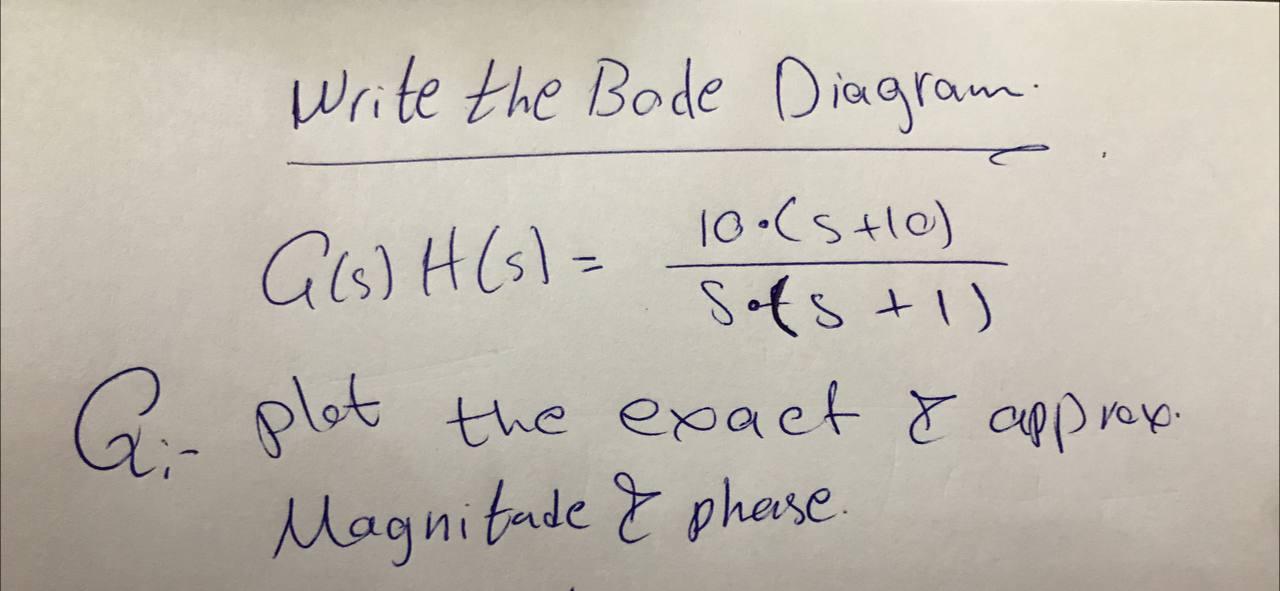 Write the Bode Diagram.
G(s) H(s) = 10·(s+10) / s·(s+1)
Q:- plot the exact & approx.
Magnitude & phase.